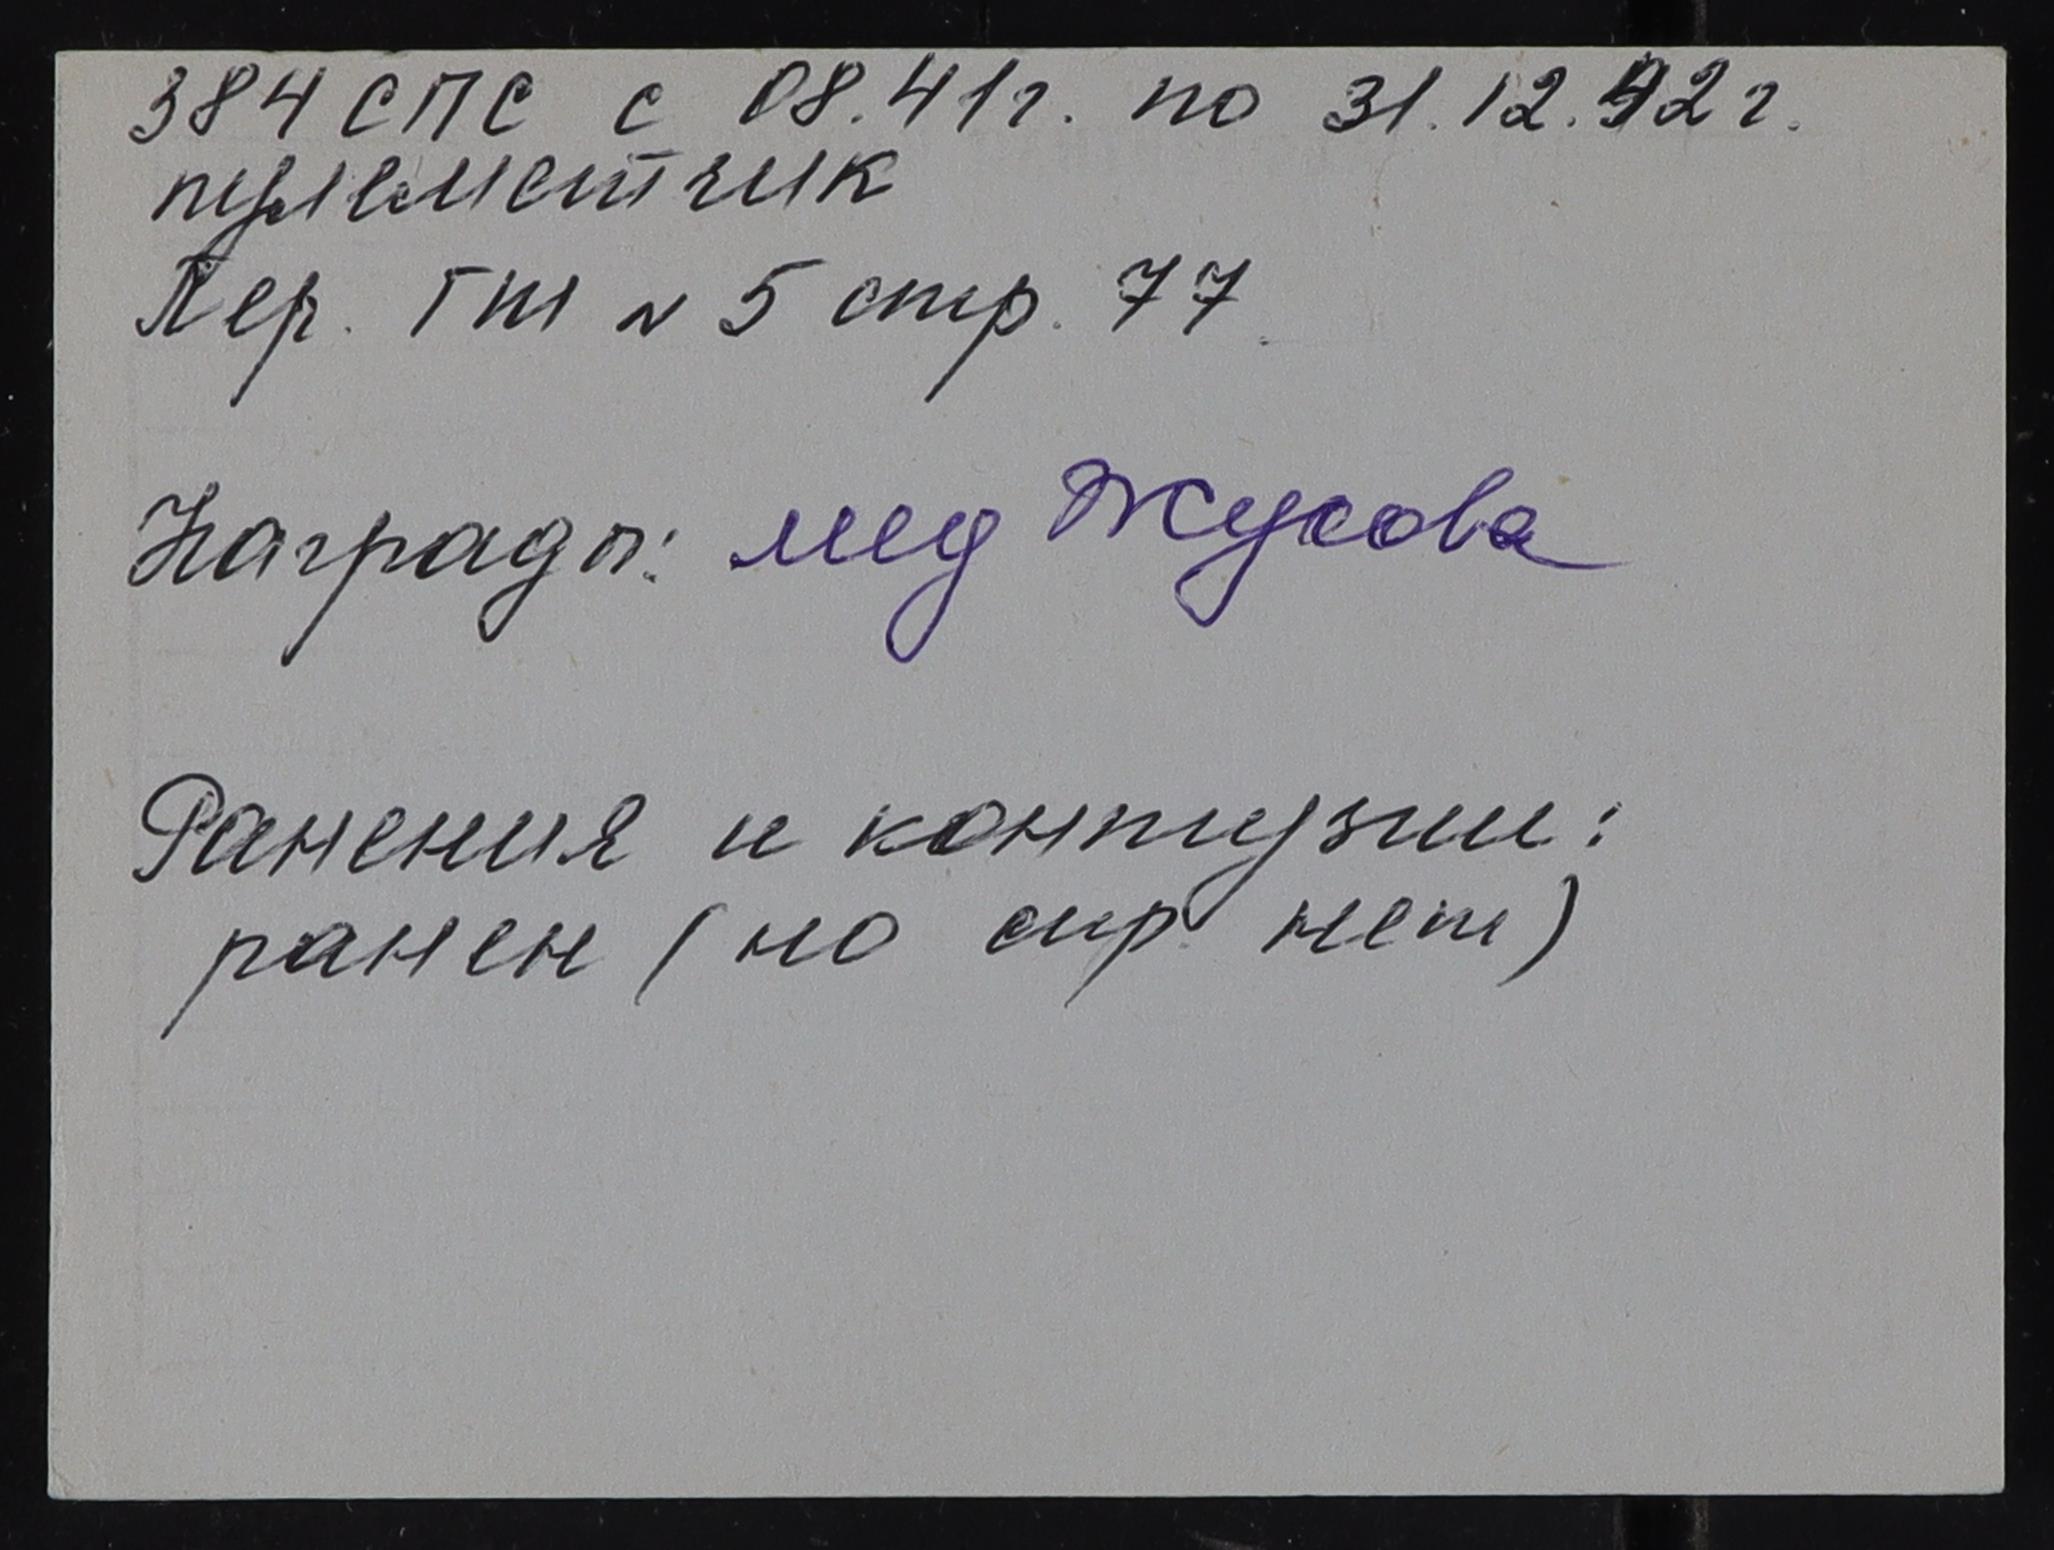 384 СПС с 08.41г. по 31.12.42г.
пулеметчик
Пер. ГШ N 5 стр. 77.
Награды: мед Жукова
Ранения и контузии:
ранен (но спр. нет)